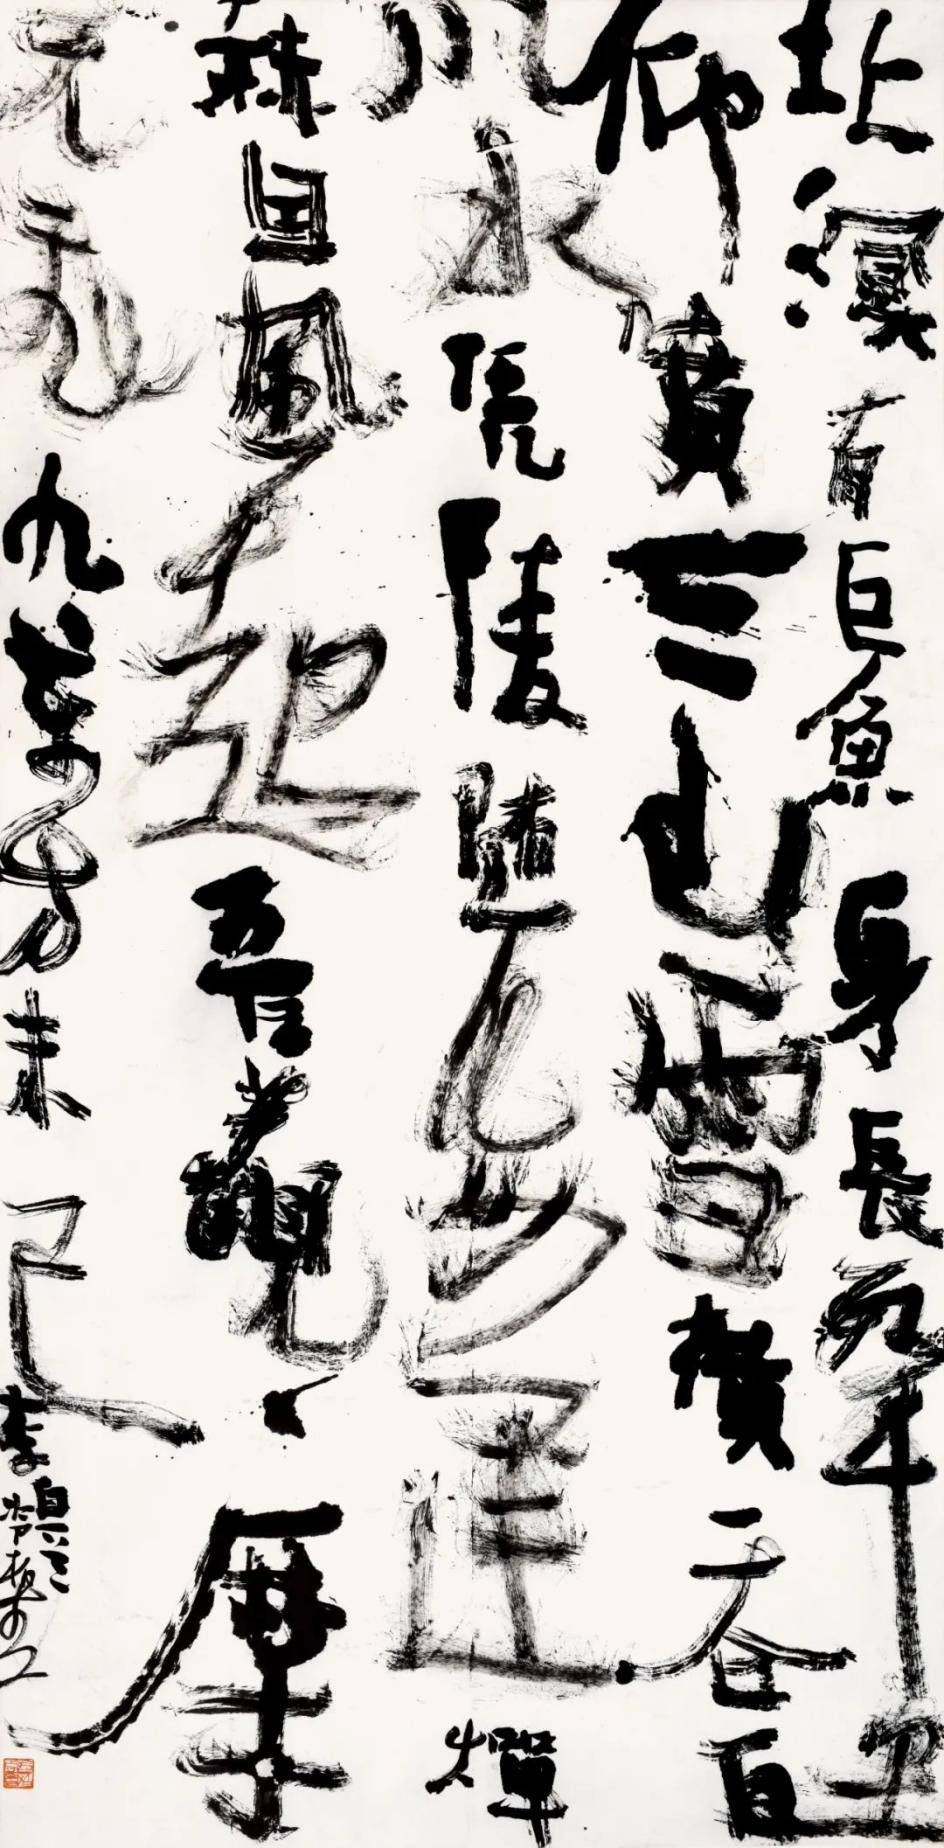 北溟有巨魚身長數千里
仰噴三山雪橫吞百
川水凭陵隨海運燀
赫因風起吾觀摩
天飛九萬方未已
李白